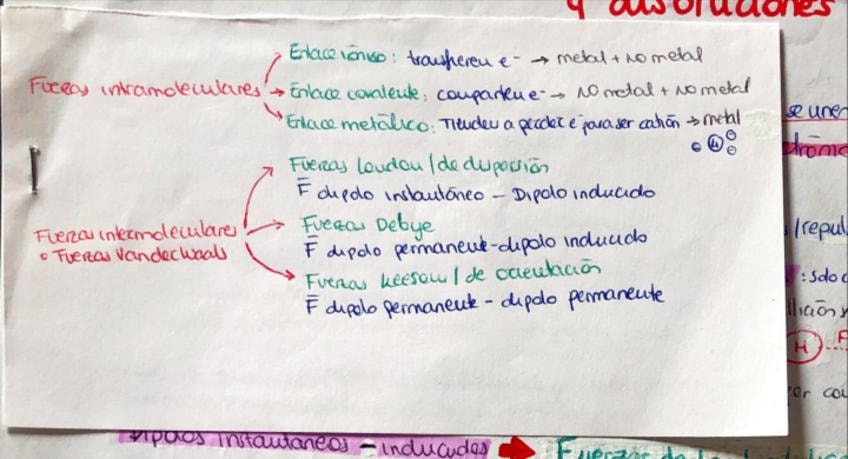 y disoluciones
Enlace iónico: transfieren e⁻ → metal + no metal
Fuerzas intramoleculares → Enlace covalente: comparten e⁻ → no metal + no metal
Enlace metálico: Tienden a perder e⁻ para ser catión → metal
Fuerzas London / de dispersión
F̄ dipolo instantáneo - Dipolo inducido
Fuerzas intermoleculares
o Fuerzas Van der Waals
Fuerzas Debye
F̄ dipolo permanente-dipolo inducido
Fuerzas Keesom / de orientación
F̄ dipolo permanente - dipolo permanente
se unen
/repul
H
Dipolos instantáneos - inducidos → Fuerzas